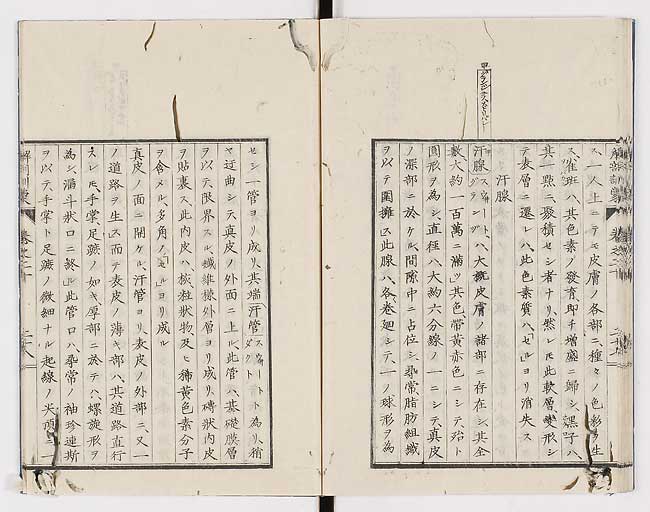 ス、一人上ニテモ皮膚ノ各部ニ種々ノ色彩ヲ生
ス、雀斑ハ、其色素ノ發育、即チ増盛ニ歸シ、黑子ハ、
其一點ニ聚積セシ者ナリ、然レ𪜈此軟層變形シ
テ表層ニ還レハ、此色素質ハ、「セル」ヨリ消失ス
汗腺
汗腺「スウート、グランド」ハ、大概皮膚ノ諸部ニ存在シ、其全
數大約一百萬ニ滿ツ、其色帶黄赤色ニシテ、殆ト
圓形ヲ為シ、直徑ハ、大約六分線ノ一ニシテ、真皮
ノ深部ニ於ケル間隙中ニ占位シ、尋常脂肪組織
ヲ以テ圍擁ス、此腺ハ、各巻廻シテ、一ノ球形ヲ為
セシ一管ヨリ成リ、其端「汗管」「スウート、ダクト」ト為リ、稍
ヤ迂曲シテ、真皮ノ外面ニ上ル、此管ハ、基礎膜層
ヲ以テ限界スル、纖維樣外層ヨリ成リ、磚狀内皮
ヲ貼裏ス、此内皮ハ、核粒狀物及ヒ稀黄色素分子
ヲ含メル、多角ノ「セル」ヨリ成ル
真皮ノ面ニ開ケル、汗管ヨリ、表皮ノ外部ニ、又一
ノ道路ヲ生ス、而テ表皮ノ薄キ部ハ、其道路直行
スレ𪜈、手掌足蹠ノ如キ厚部ニ於テハ、螺旋形ヲ
為シ、漏斗狀口ニ終ル、此管口ハ、尋常ノ袖珍連斯
ヲ以テ、手掌ト足蹠ノ微細ナル、起線ノ尖頂ニ一